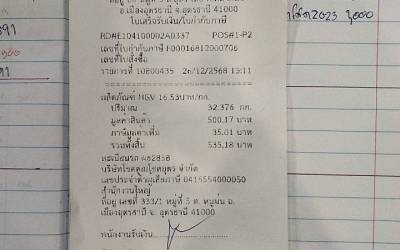 อ.เมืองอุดรธานี จ.อุดรธานี 41000
ใบเสร็จรับเงิน/ใบกำกับภาษี
RD#E104100002A0337 POS#1-P2
เลขที่ใบกำกับภาษี F00016812000706
เลขที่ใบสั่งซื้อ
รายการที่ 10800435 26/12/2568 15:11
ผลิตภัณฑ์ NGV 16.53บาท/กก.
ปริมาณ 32.376 กก.
มูลค่าสินค้า 500.17 บาท
ภาษีมูลค่าเพิ่ม 35.01 บาท
รวมทั้งสิ้น 535.18 บาท
ทะเบียนรถ ผข2858
บริษัทโชคคูณโชคอุดร จำกัด
เลขประจำตัวผู้เสียภาษี 0415554000050
สำนักงานใหญ่
ที่อยู่ เลขที่ 333/1 หมู่ที่ 3 ต. หมูม่น อ.
เมืองอุดรธานี จ. อุดรธานี 41000
พนักงานรับเงิน
2023
391